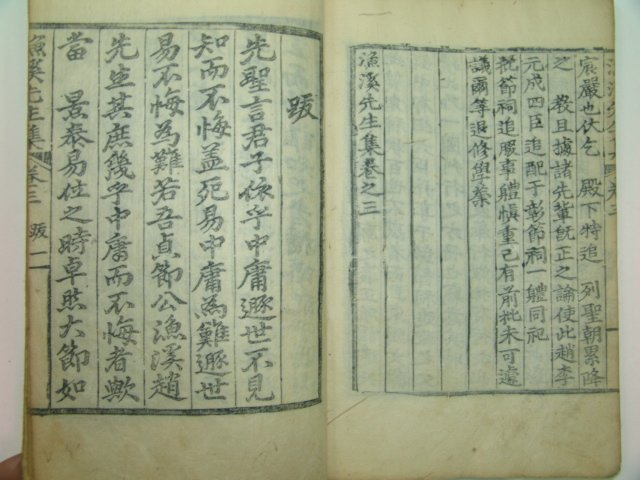 宸嚴也伏乞　殿下特追　列聖朝累降
之　敎且據諸先輩旣正之論使此趙李
元成四臣追配于彰節祠一軆同祀
批節祠追腏事軆愼重已有前批未可遽
議爾等退修學業
漁溪先生集卷之三
跋
先聖言君子依乎中庸遯世不見
知而不悔盖死易中庸爲難遯世
易不悔爲難若吾貞節公漁溪趙
先生其庶幾乎中庸而不悔者歟
當　景泰易位之時卓然大節如
漁溪先生集　卷三　跋　二